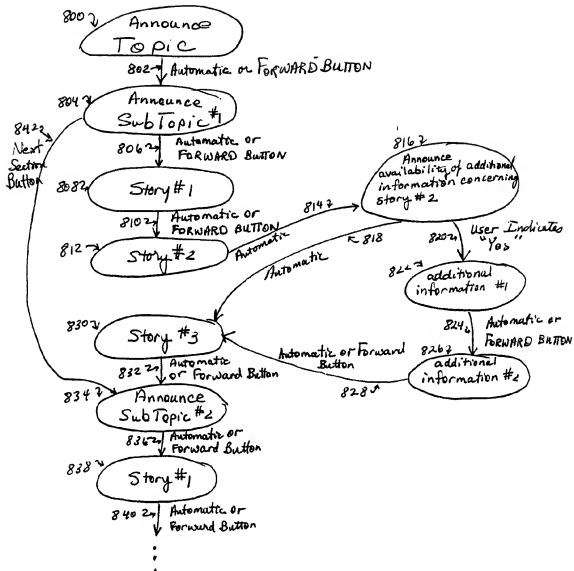 800
Announce
Topic
802 Automatic or FORWARD BUTTON
804
Announce
SubTopic #1
842
Next
Section
Button
806
Automatic or
FORWARD BUTTON
808
Story #1
810
Automatic or
FORWARD BUTTON
812
Story #2
814
Automatic
816
Announce
availability of additional
information concerning
story #2
818
Automatic
820
User Indicates
"Yes"
822
additional
information #1
824
Automatic or
FORWARD BUTTON
826
additional
information #2
Automatic or Forward
Button
828
830
Story #3
832
Automatic
or Forward Button
834
Announce
SubTopic #2
836
Automatic or
Forward Button
838
Story #1
840
Automatic or
Forward Button